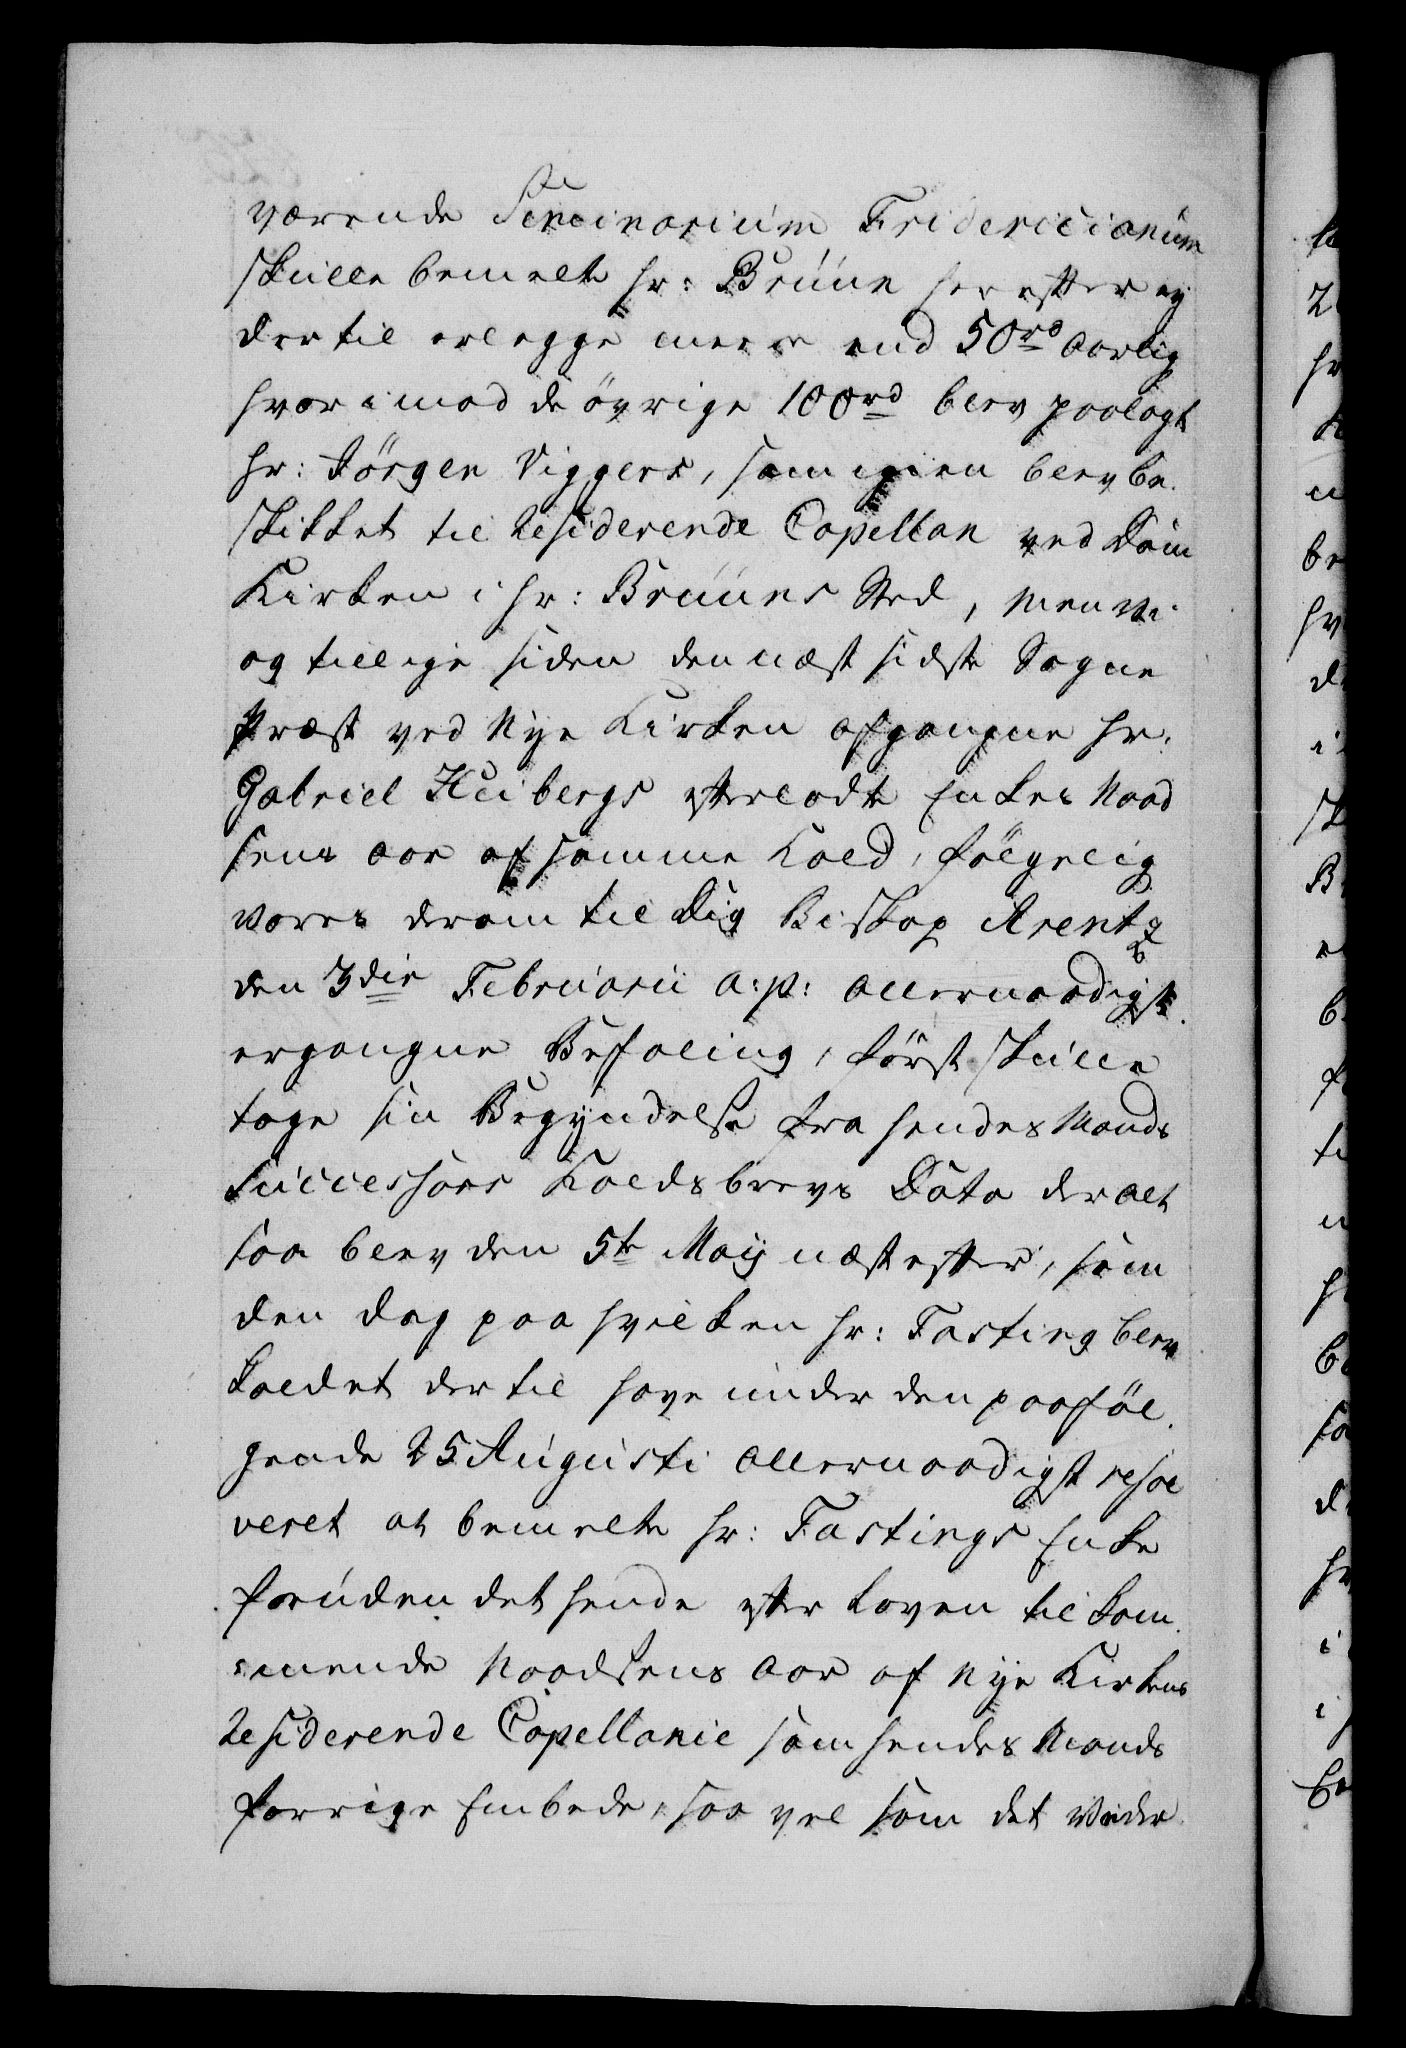 værende Seminarium Fridericianum
skulle bemelte Hr: Bruun herefter ey
dertil erlegge meere end 50rd aarlig
hvorimod de øvrige 100rd blev paalagt
Hr: Jørgen Viggers, som igien blev be-
skikket til Residerende Capellan ved Dom
Kirken i Hr: Bruuns Sted, men
og tillige siden den næst sidste Sogne
Præst ved Nye Kirken afgangne Hr:
Gabriel Heibergs efterladte Enkes Naad
sens aar af samme Kald, følgelig
vores derom til Dig Biskop Arentz
den 3die Februarii a:p: allernaadigst
ergangne Befaling, først skulle
tage sin Begyndelse fra hendes Mands
Successors Kaldsbrevs Dato der alt
saa blev den 5te Maij næstefter, som
den Dag paa hvilken Hr: Fasting blev
kaldet dertil have under den paaføl-
gende 25 Augusti allernaadigst resol
veret at bemelte Hr: Fastings Enke
foruden det hende efter Loven tilkom-
mende Naadsens aar af Nye Kirkens
Residerende Capellanie som hendes Mands
forrige Embede, saa vel som det Veder-